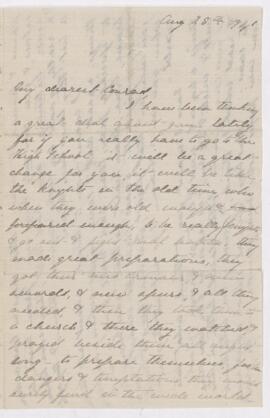 Aug 28th 194
My dearest Conrad,
I have been thinking
a great deal about you lately
for if you really have to go to the
High School, it will be a great
change for you, it will be like
the Knights in the old time who
when they were old enough &
prepared enough, to be really knights
& go out & fight real battles, they
made great preparations, they
got their new armour & new
swords, & new spurs, & all they
needed, & then they took them to
a church & there they watched &
prayed beside them all night
long - to prepare themselves for the
dangers & temptations they would
surely find in the wide world.